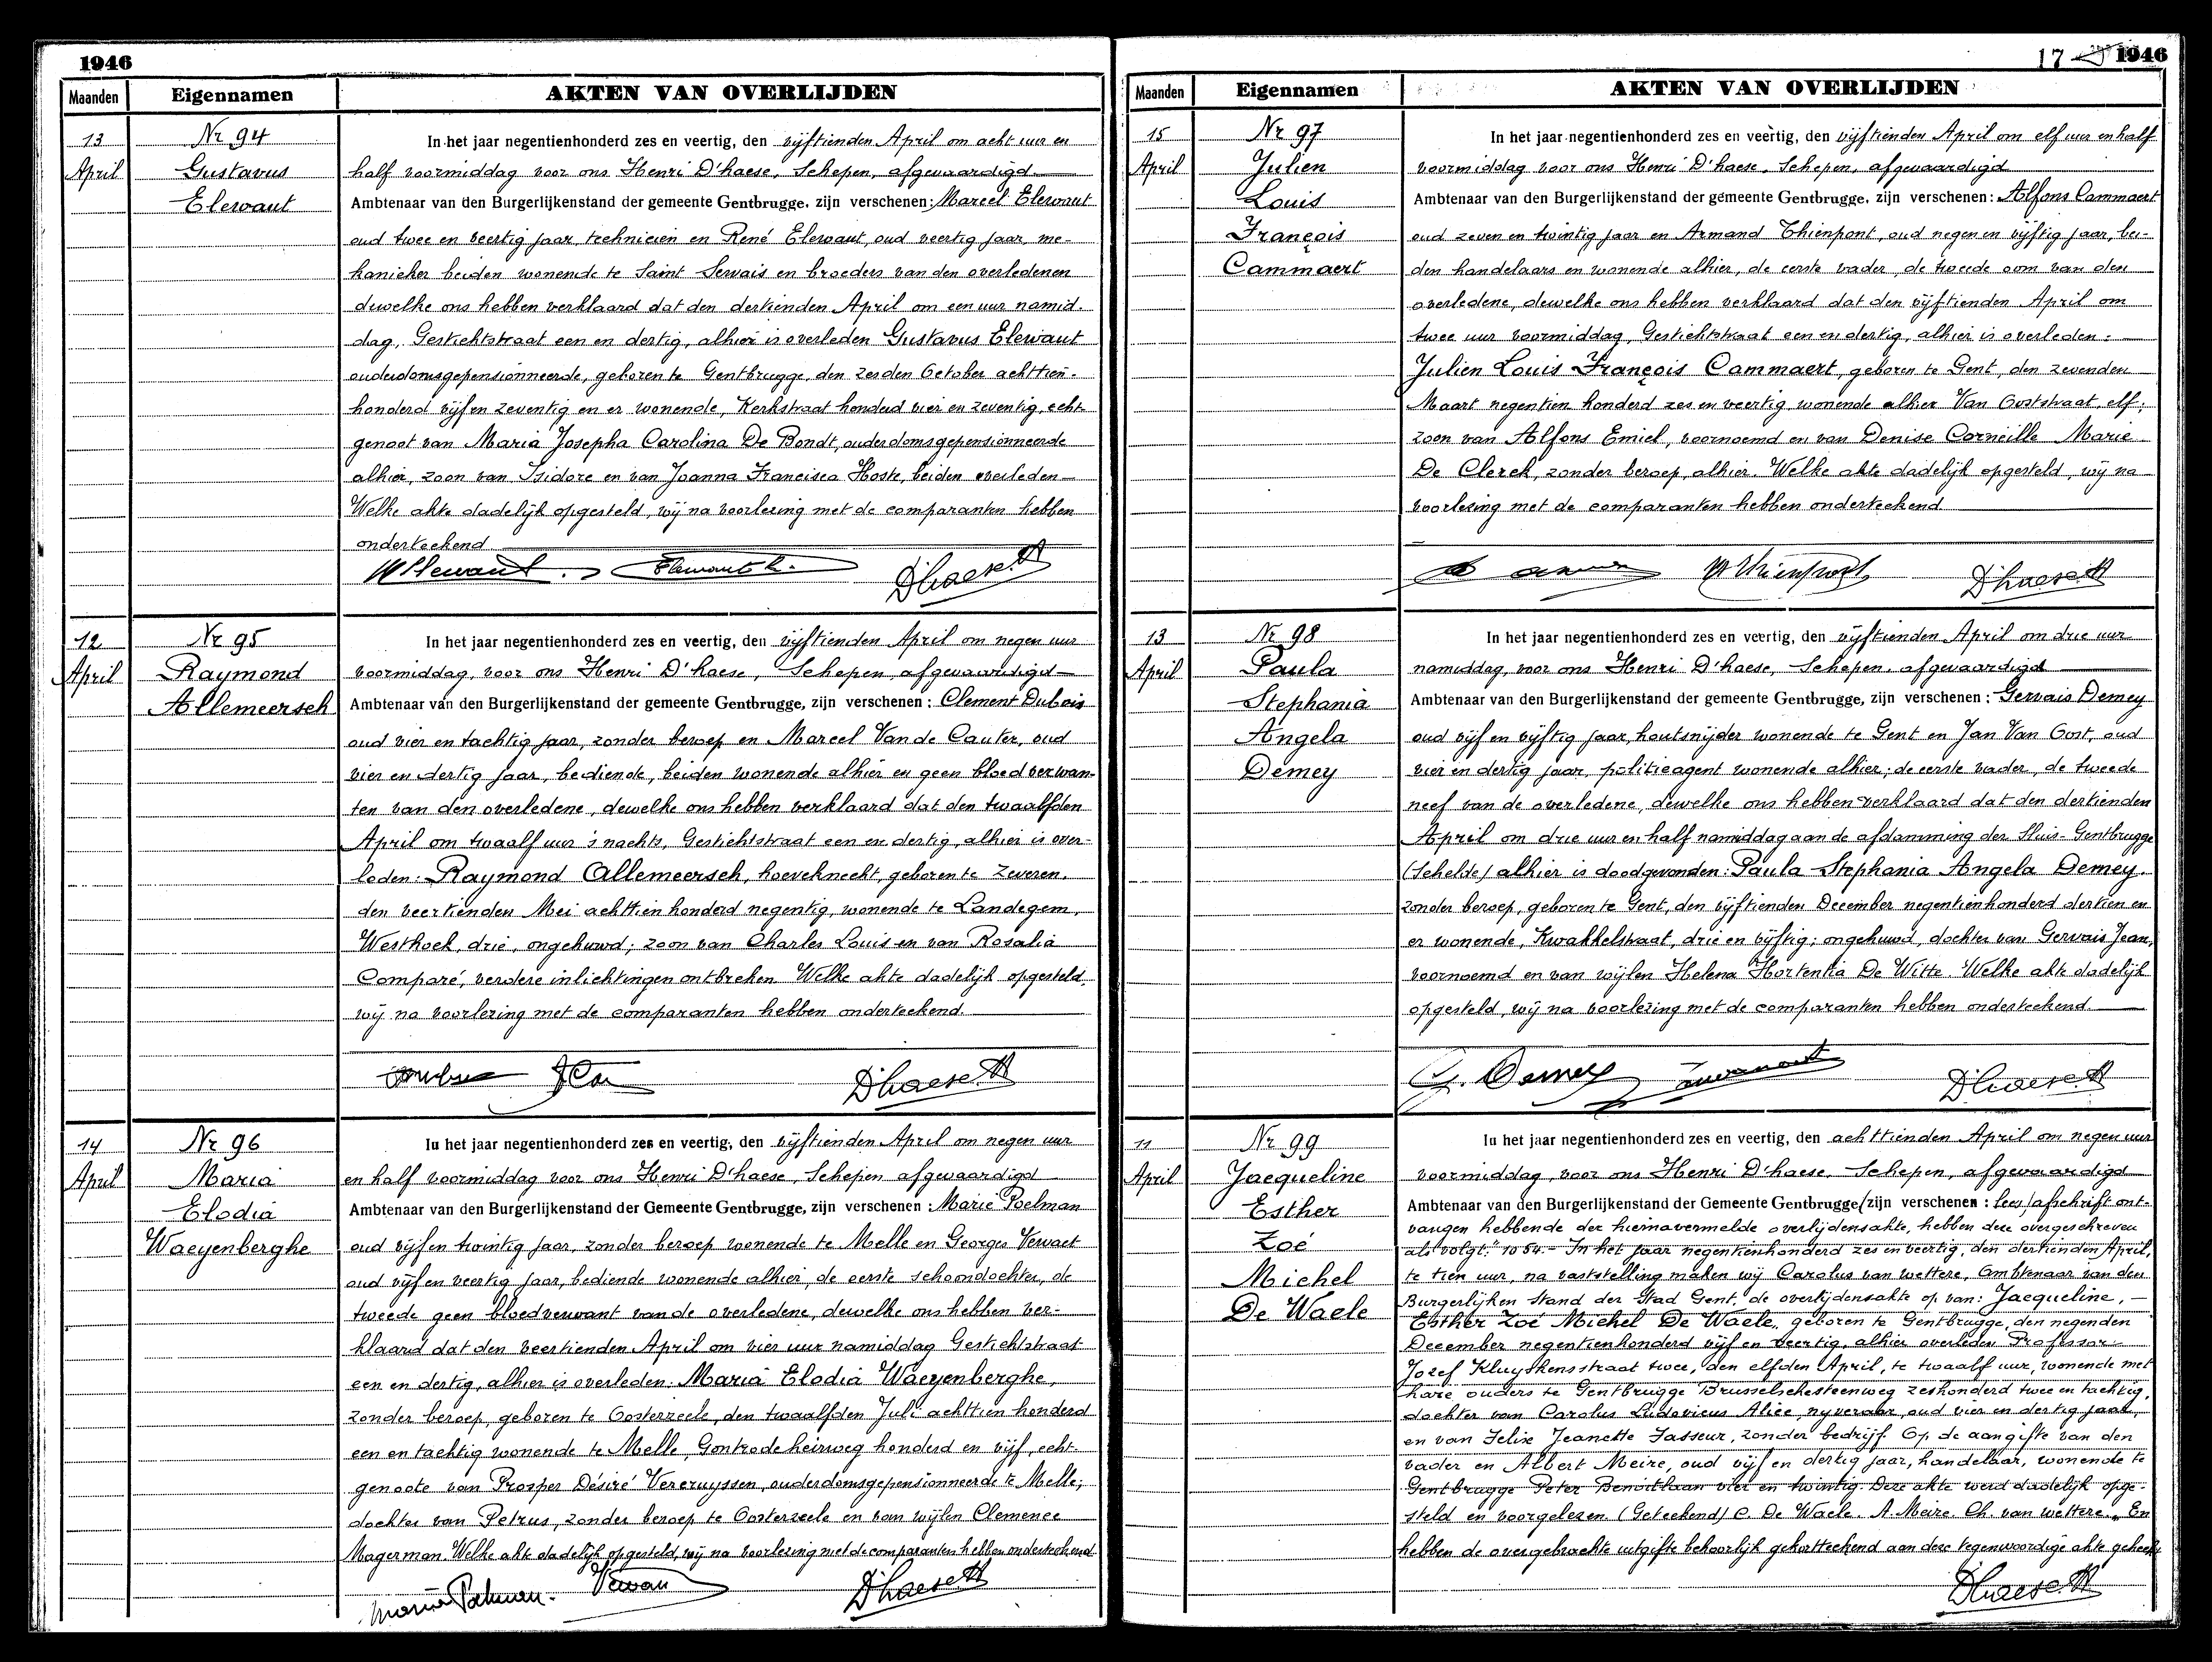 1946
Maanden Eigennamen AKTEN VAN OVERLIJDEN
13 April
Nr 94
Gustavus
Elewaut
In het jaar negentienhonderd zes en veertig, den vijftienden April om acht uur en
half voormiddag voor ons Henri D'haese, Schepen, afgevaardigd
Ambtenaar van den Burgerlijkenstand der gemeente Gentbrugge, zijn verschenen: Marcel Elewaut
oud twee en veertig jaar technicien en René Elewaut, oud veertig jaar, me-
kanieker beiden wonende te Saint Servais en broeders van den overledenen
dewelke ons hebben verklaard dat den dertienden April om een uur namid-
dag, Gestichtstraat een en dertig, alhier is overleden Gustavus Elewaut
ouderdomsgepensionneerde, geboren te Gentbrugge, den zesden October achttien-
honderd vijf en zeventig en er wonende, Kerkstraat honderd vier en zeventig, echt-
genoot van Maria Josepha Carolina De Bondt, ouderdomsgepensionneerde
alhier, zoon van Isidore en van Joanna Francisca Hoste, beiden overleden
Welke akte dadelijk opgesteld, wij na voorlezing met de comparanten hebben
onderteekend
M Elewaut. Elewaut R. D'haese H
12 April
Nr 95
Raymond
Allemeersch
In het jaar negentienhonderd zes en veertig, den vijftienden April om negen uur
voormiddag, voor ons Henri D'haese, Schepen, afgevaardigd
Ambtenaar van den Burgerlijkenstand der gemeente Gentbrugge, zijn verschenen: Clement Dubois
oud vier en tachtig jaar, zonder beroep en Marcel Van de Cauter, oud
vier en dertig jaar, bediende, beiden wonende alhier en geen bloedverwan-
ten van den overledene, dewelke ons hebben verklaard dat den twaalfden
April om twaalf uur 's nachts, Gestichtstraat een en dertig, alhier is over-
leden: Raymond Allemeersch, hoeveknecht, geboren te Zeveren.
den veertienden Mei achttien honderd negentig, wonende te Landegem,
Westhoek, drie, ongehuwd; zoon van Charles Louis en van Rosalia
Comparé, verdere inlichtingen ontbreken. Welke akte dadelijk opgesteld,
wij na voorlezing met de comparanten hebben onderteekend.
D'haese H
14 April
Nr 96
Maria
Elodia
Waeyenberghe
In het jaar negentienhonderd zes en veertig, den vijftienden April om negen uur
en half voormiddag voor ons Henri D'haese, Schepen afgevaardigd
Ambtenaar van den Burgerlijkenstand der Gemeente Gentbrugge, zijn verschenen: Marie Poelman
oud vijf en twintig jaar, zonder beroep wonende te Melle en Georges Vervaet
oud vijf en veertig jaar, bediende wonende alhier, de eerste schoondochter, de
tweede geen bloedverwant van de overledene, dewelke ons hebben ver-
klaard dat den veertienden April om vier uur namiddag Gestichtstraat
een en dertig, alhier is overleden: Maria Elodia Waeyenberghe,
zonder beroep, geboren te Oosterzeele, den twaalfden Juli achttien honderd
een en tachtig wonende te Melle, Gontrode heirweg honderd en vijf, echt-
genoote van Prosper Désiré Vercruyssen, ouderdomsgepensionneerde te Melle;
dochter van Petrus, zonder beroep te Oosterzeele en van wijlen Clemence
Magerman. Welke akte dadelijk opgesteld, wij na voorlezing met de comparanten hebben onderteekend
D'haese H
17 1946
Maanden Eigennamen AKTEN VAN OVERLIJDEN
15 April
Nr 97
Julien
Louis
François
Cammaert
In het jaar negentienhonderd zes en veertig, den vijftienden April om elf uur en half
voormiddag voor ons Henri D'haese, Schepen, afgevaardigd
Ambtenaar van den Burgerlijkenstand der gemeente Gentbrugge, zijn verschenen: Alfons Cammaert
oud zeven en twintig jaar en Armand Thienpont, oud negen en vijftig jaar, bei-
den handelaars en wonende alhier, de eerste vader, de tweede oom van den
overledene, dewelke ons hebben verklaard dat den vijftienden April om
twee uur voormiddag, Gestichtstraat een en dertig, alhier is overleden:
Julien Louis François Cammaert, geboren te Gent, den zevenden
Maart negentien honderd zes en veertig wonende alhier Van Ooststraat, elf;
zoon van Alfons Emiel, voornoemd en van Denise Corneille Marie
De Clerck, zonder beroep, alhier. Welke akte dadelijk opgesteld, wij na
voorlezing met de comparanten hebben onderteekend
A Thienpont D'haese H
13 April
Nr 98
Paula
Stephania
Angela
Demey
In het jaar negentienhonderd zes en veertig, den vijftienden April om drie uur
namiddag, voor ons Henri D'haese, Schepen, afgevaardigd
Ambtenaar van den Burgerlijkenstand der gemeente Gentbrugge, zijn verschenen: Gervais Demey
oud vijf en vijftig jaar, houtsnijder wonende te Gent en Jan Van Oost, oud
vier en dertig jaar, politieagent wonende alhier; de eerste vader, de tweede
neef van de overledene, dewelke ons hebben verklaard dat den dertienden
April om drie uur en half namiddag aan de afdamming der Sluis-Gentbrugge
(Schelde) alhier is doodgevonden: Paula Stephania Angela Demey.
zonder beroep, geboren te Gent, den vijftienden December negentienhonderd dertien en
er wonende, Kwakkelstraat, drie en vijftig; ongehuwd, dochter van Gervais Jean,
voornoemd en van wijlen Helena Hortentia De Witte. Welke akte dadelijk
opgesteld, wij na voorlezing met de comparanten hebben onderteekend.
G. Demey D'haese H
11 April
Nr 99
Jacqueline
Esther
Zoé
Michel
De Waele
In het jaar negentienhonderd zes en veertig, den achttienden April om negen uur
voormiddag, voor ons Henri D'haese, Schepen, afgevaardigd
Ambtenaar van den Burgerlijkenstand der Gemeente Gentbrugge/zijn verschenen: lees/afschrift ont-
vangen hebbende der hiernavermelde overlijdensakte, hebben deze overgeschreven
als volgt: "1054.- In het jaar negentienhonderd zes en veertig, den dertienden April,
te tien uur, na vaststelling maken wij Carolus van wettere, Ambtenaar van den
Burgerlijken Stand der Stad Gent, de overlijdensakte op van: Jacqueline,
Esther Zoé Michel De Waele, geboren te Gentbrugge, den negenden
December negentienhonderd vijf en veertig, alhier overleden Professor
Jozef Kluyskensstraat twee, den elfden April, te twaalf uur, wonende met
hare ouders te Gentbrugge Brusselschesteenweg zeshonderd twee en tachtig,
dochter van Carolus Ludovicus Alice, nyveraar, oud vier en dertig jaar,
en van Felixe Jeanette Fasseur, zonder bedrijf. Op de aangifte van den
vader en Albert Meire, oud vijf en dertig jaar, handelaar, wonende te
Gentbrugge Peter Benoitlaan vier en twintig. Deze akte werd dadelijk opge-
steld en voorgelezen (Geteekend) C. De Waele. A. Meire. Ch. van wettere." En
hebben de overgebrachte uitgifte behoorlijk gekortteekend aan deze tegenwoordige akte gehecht
D'haese H